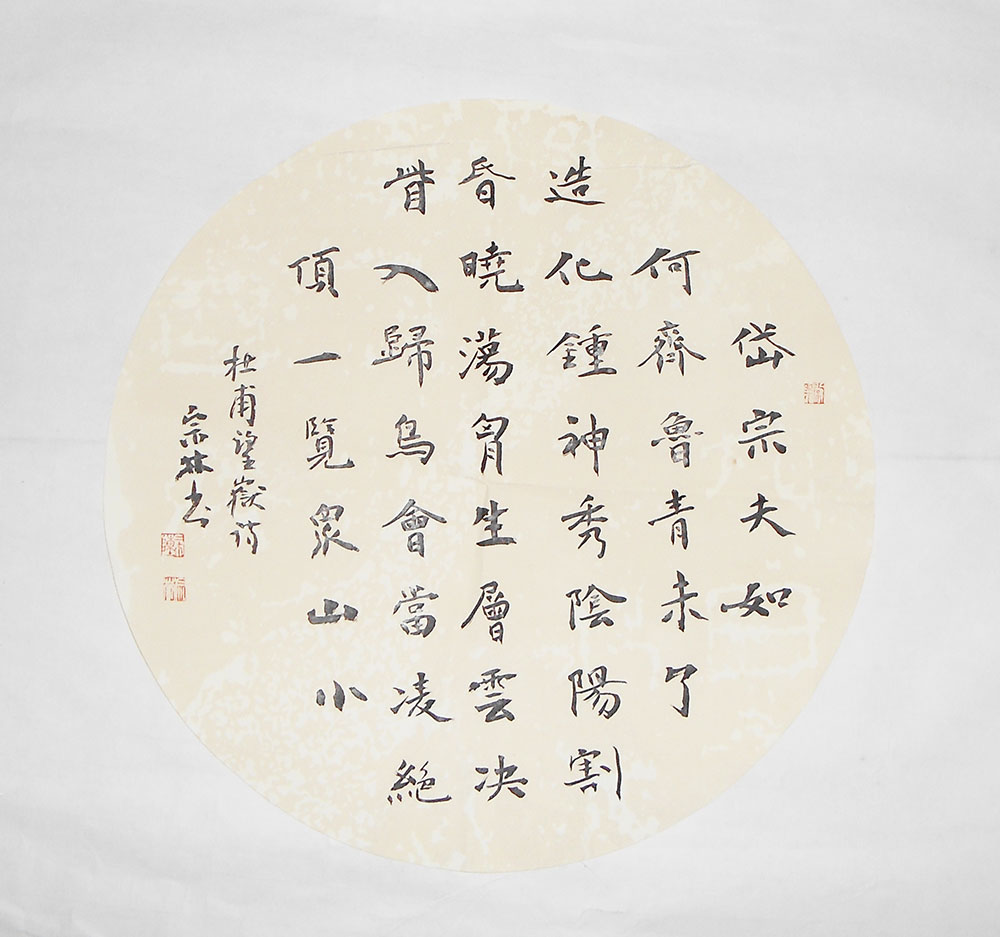 岱宗夫如
何齊魯青未了
造化鍾神秀陰陽割
昏曉蕩胷生層雲决
眥入歸鳥會當凌絕
頂一覽眾山小
杜甫望嶽詩
宗林书